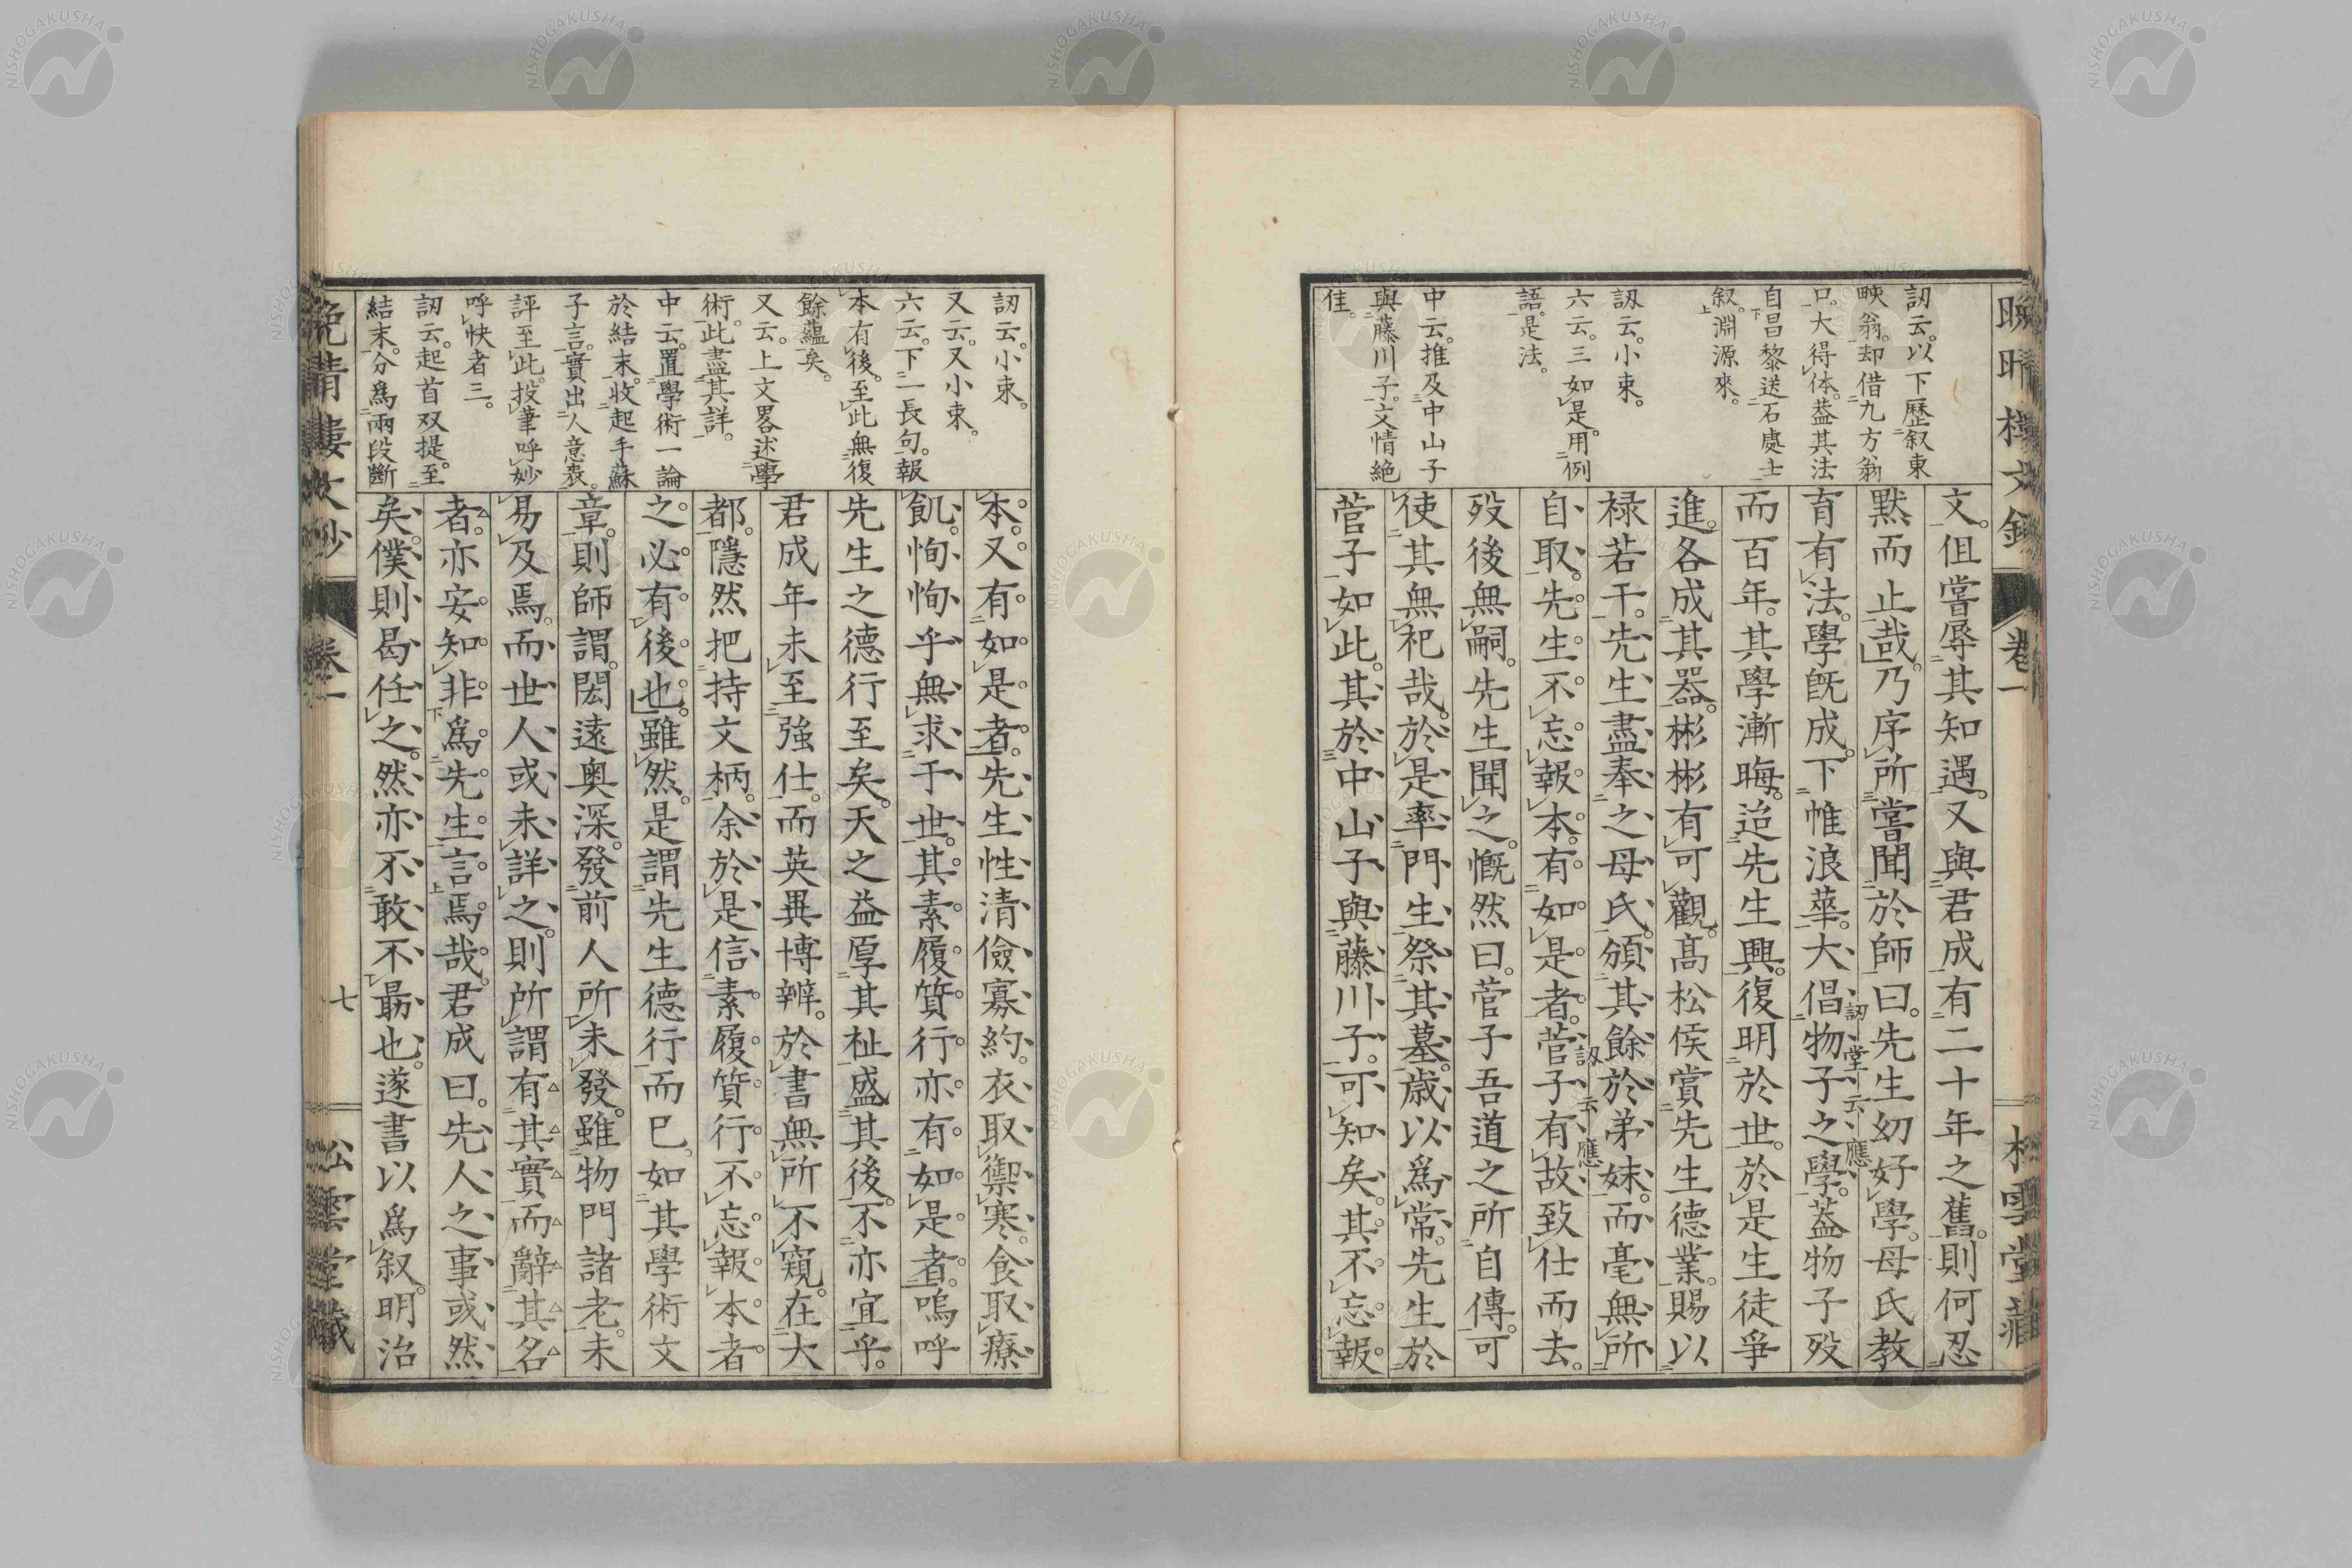 訒云。以下歴叙東
畡翁。却借九方翁
口。大得体。葢其法
自昌黎送石處士
叙。淵源來。
訒云。小束。
六云。三如是。用例
語。是法。
中云。推及中山子
與藤川子。文情絶
佳。
文。但嘗辱其知遇。又與君成有二十年之舊。則何忍
默而止哉。乃序所嘗聞於師曰。先生幼好學。母氏教
育有法。學既成。下帷浪華。大倡物子之學。葢物子歿
訒堂云應
而百年。其學漸晦。迨先生興。復明於世。於是生徒爭
進。各成其器。彬彬有可觀。高松侯賞先生德業。賜以
禄若干。先生盡奉之母氏。頒其餘於弟妹。而毫無所
自取。先生不忘報本。有如是者。菅子有故致仕而去。
訒云應
歿後無嗣。先生聞之。慨然曰。菅子吾道之所自傳。可
使其無祀哉。於是率門生祭其墓。歳以爲常。先生於
菅子如此。其於中山子與藤川子。可知矣。其不忘報
卷一
訒云。小束。
又云。又小束。
六云。下一長句。報
本有後。至此無復
餘蘊矣。
又云。上文畧述學
術。此盡其詳。
中云。置學術一論
於結末。收起手蘇
子言。實出人意表。
評至此。投筆呼妙
呼快者三。
訒云。起首双提。至
結末。分爲兩段斷
本。又有如是者。先生性清儉寡約。衣取禦寒。食取療
飢。恂恂乎無求于世。其素履質行。亦有如是者。嗚呼
先生之德行至矣。天之益厚其祉。盛其後。不亦宜乎。
君成年未至強仕。而英異博辨。於書無所不窺。在大
都。隱然把持文柄。余於是信素履質行。不忘報本者
之必有後也。雖然。是謂先生德行而已。如其學術文
章。則師謂。閎遠奥深。發前人所未發。雖物門諸老。未
易及焉。而世人或未詳之。則所謂有其實而辭其名
者。亦安知非爲先生言焉哉。君成曰。先人之事或然
矣。僕則曷任之。然亦不敢不勗也。遂書以爲叙。明治
卷一
七
松雲堂藏
NISHOGAKUSHA